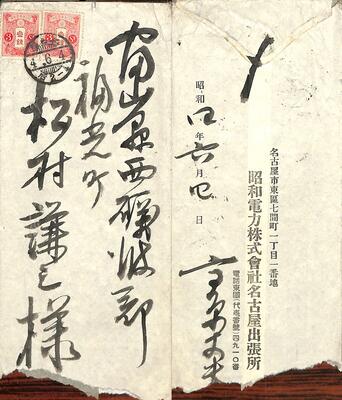 富山縣西礪波郡
福光町
松村謙三様
4.6.4
名古屋市東區七間町一丁目一番地
昭和電力株式會社名古屋出張所
電話東園(代表番號)二四九一〇番
昭和四年六月四日